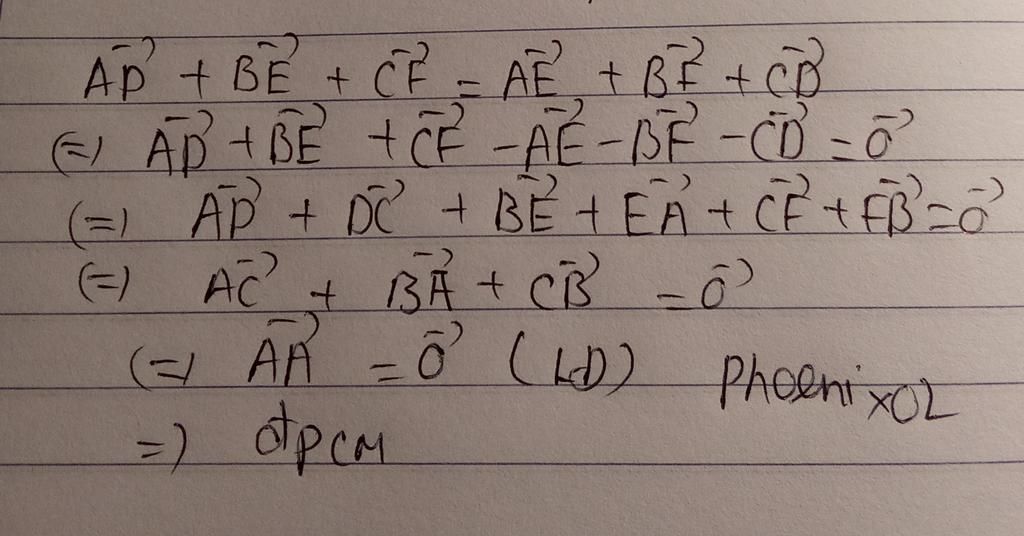 AD⃗ + BE⃗ + CF⃗ = AE⃗ + BF⃗ + CD⃗
(=) AD⃗ + BE⃗ + CF⃗ - AE⃗ - BF⃗ - CD⃗ = 0⃗
(=) AD⃗ + DC⃗ + BE⃗ + EA⃗ + CF⃗ + FB⃗ = 0⃗
(=) AC⃗ + BA⃗ + CB⃗ = 0⃗
(=) AA⃗ = 0⃗ (LĐ) PhoenixOL
=) đpcm